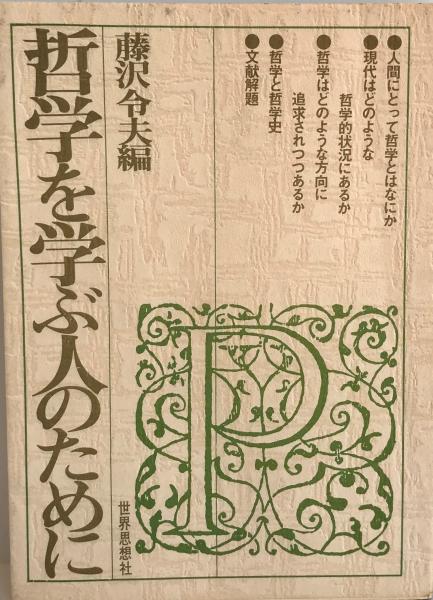 ●人間にとって哲学とはなにか
●現代はどのような
哲学的状況にあるか
●哲学はどのような方向に
追求されつつあるか
●哲学と哲学史
●文献解題
藤沢令夫編
哲学を学ぶ人のために
P
世界思想社